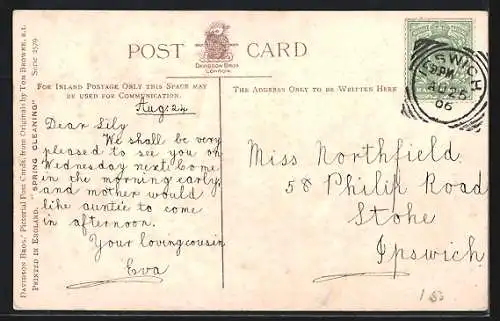 Davidson Bros.' Pictorial Post Cards from Originals by Tom Browne, R.I.
Printed in England. "SPRING CLEANING" Serie 2579
POST CARD
DAVIDSON BROS.
LONDON.
FOR INLAND POSTAGE ONLY THIS SPACE MAY
BE USED FOR COMMUNICATION.
THE ADDRESS ONLY TO BE WRITTEN HERE
Aug: 24
Dear Lily
We shall be very
pleased to see you on
Wednesday next. Come
in the morning early,
and mother would
like auntie to come
in afternoon.
Your loving cousin
Eva
IPSWICH
PM
AU 25
06
Miss Northfield
58 Philip Road
Stoke
Ipswich